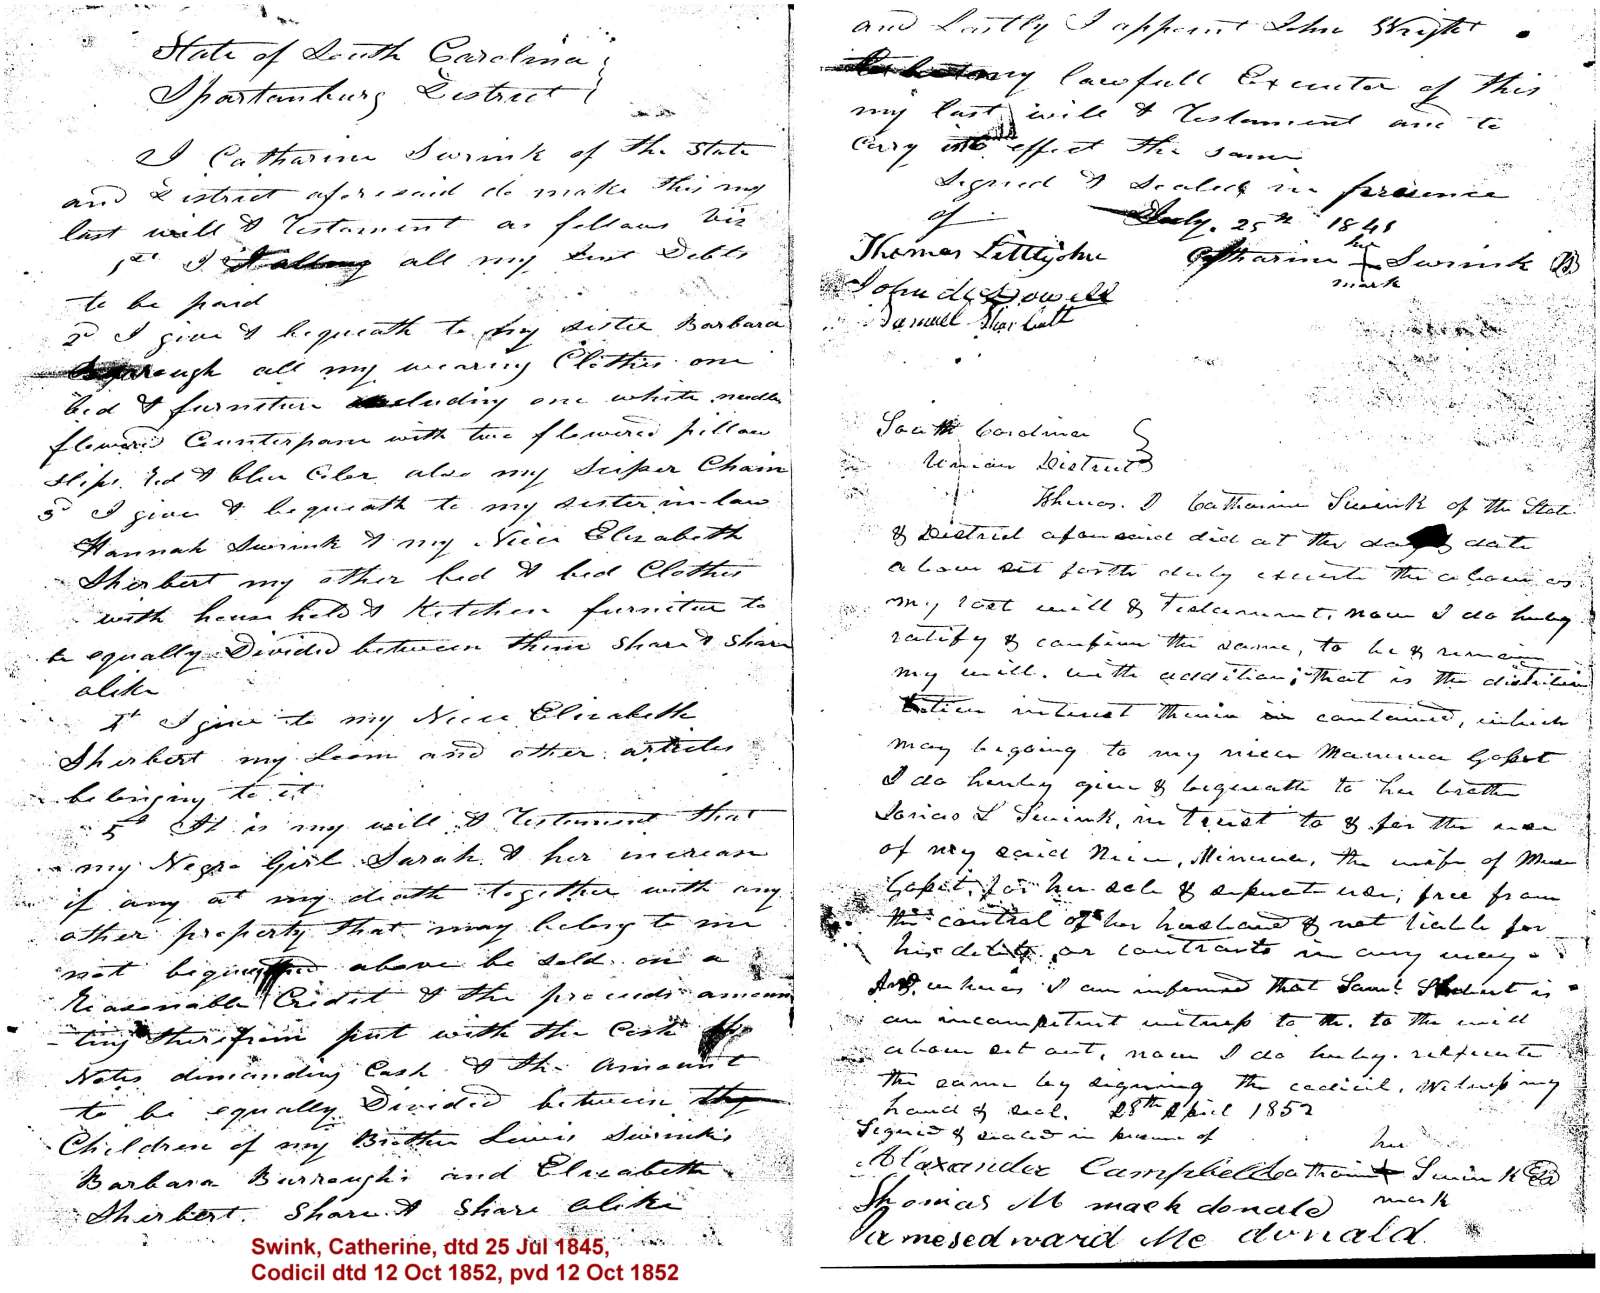 State of South Carolina
Spartanburg District
I Catharine Swink of the State
and District aforesaid do make this my
last will & Testament as follows Viz
1st I all my Just Debts
to be paid
2d I give & bequeath to my sister Barbara
all my wearing Clothes one
bed & furniture including one white needle
flowered Counterpane with two flowered pillow
slips red & blue Color also my Chain
3d I give & bequeath to my sister in-law
Hannah Swink & my Niece Elizabeth
Sherbert my other bed & bed Clothes
with house hold & Kitchen furniture to
be equally Divided between them Share & Share
alike
4th I give to my Niece Elizabeth
Sherbert my Loom and other articles
belonging to it
5th It is my will & Testament that
my Negro Girl Sarah & her increase
if any at my death together with any
other property that may belong to me
not above be sold on a
Reasonable Credit & the proceeds amoun
ting therefrom put with the Cash
Notes demanding Cash & the Amount
to be equally Divided between the
Children of my Brother Lewis Swink's
Barbara Burrough's and Elizabeth
Sherbert Share & Share alike
and Lastly I appoint John Wright
my lawfull Executor of this
my last will & Testament and to
cary into effect the same
Signed & Sealed in presence
of July. 25th 1845
Thomas Littlejohn Catharine her Swink
mark
John
Samuel
South Carolina
Union District
Whereas. I Catharine Swink of the State
& District aforesaid did at the day & date
above set forth duly execute the above as
my last will & Testament, now I do hereby
ratify & confirm the same, to be & remain
my will. with addition; that is the
interest therein contained, which
may be going to my niece
I do hereby give & bequeath to her brother
L Swink, in Trust to & for the use
of my said Niece, the wife of
for her sole & seperate use, free from
the control of her husband & not liable for
his debts or contracts in any way.
And, whereas I am informed that Saml. is
an incompetent witness to the. to the will
above set out, now I do hereby. reexecute
the same by signing the codicil. Witness my
hand & seal. 28th April 1852
Signed & sealed in presence of her
Alaxander Campbell Catharine Swink
Thomas M mack donald mark
Jamesedward Mc donald
Swink, Catherine, dtd 25 Jul 1845,
Codicil dtd 12 Oct 1852, pvd 12 Oct 1852